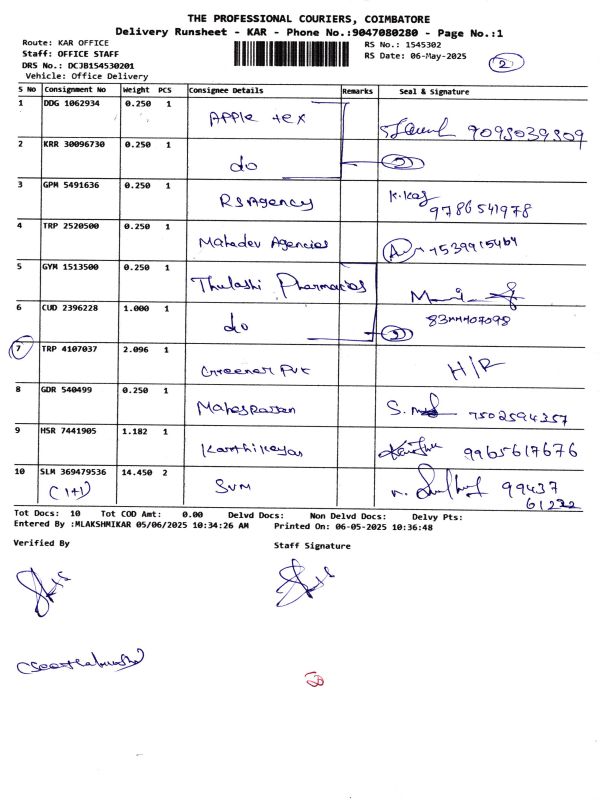 THE PROFESSIONAL COURIERS, COIMBATORE
Delivery Runsheet - KAR - Phone No.:9047080280 - Page No.:1
Route: KAR OFFICE
Staff: OFFICE STAFF
DRS No.: DCJB154530201
Vehicle: Office Delivery
RS No.: 1545302
RS Date: 06-May-2025
2
S No Consignment No Weight PCS Consignee Details Remarks Seal & Signature
1 DDG 1062934 0.250 1 Apple tex 9095039309
2 KRR 30096730 0.250 1 do 2
3 GPM 5491636 0.250 1 RS Agency K.Kaj 9786541978
4 TRP 2520500 0.250 1 Mahadev Agencies
5 GYM 1513500 0.250 1 Thulashi Pharmacies
6 CUD 2396228 1.000 1 do 2
7 TRP 4107037 2.096 1 Greener Pvt H/R
8 GDR 540499 0.250 1 7502594357
9 HSR 7441905 1.182 1 Karthikeyan 9965617676
10 SLM 369479536 14.450 2 SVM 99437
(1+1) 61232
Tot Docs: 10 Tot COD Amt: 0.00 Delvd Docs: Non Delvd Docs: Delvy Pts:
Entered By :MLAKSHMIKAR 05/06/2025 10:34:26 AM Printed On: 06-05-2025 10:36:48
Verified By
Staff Signature